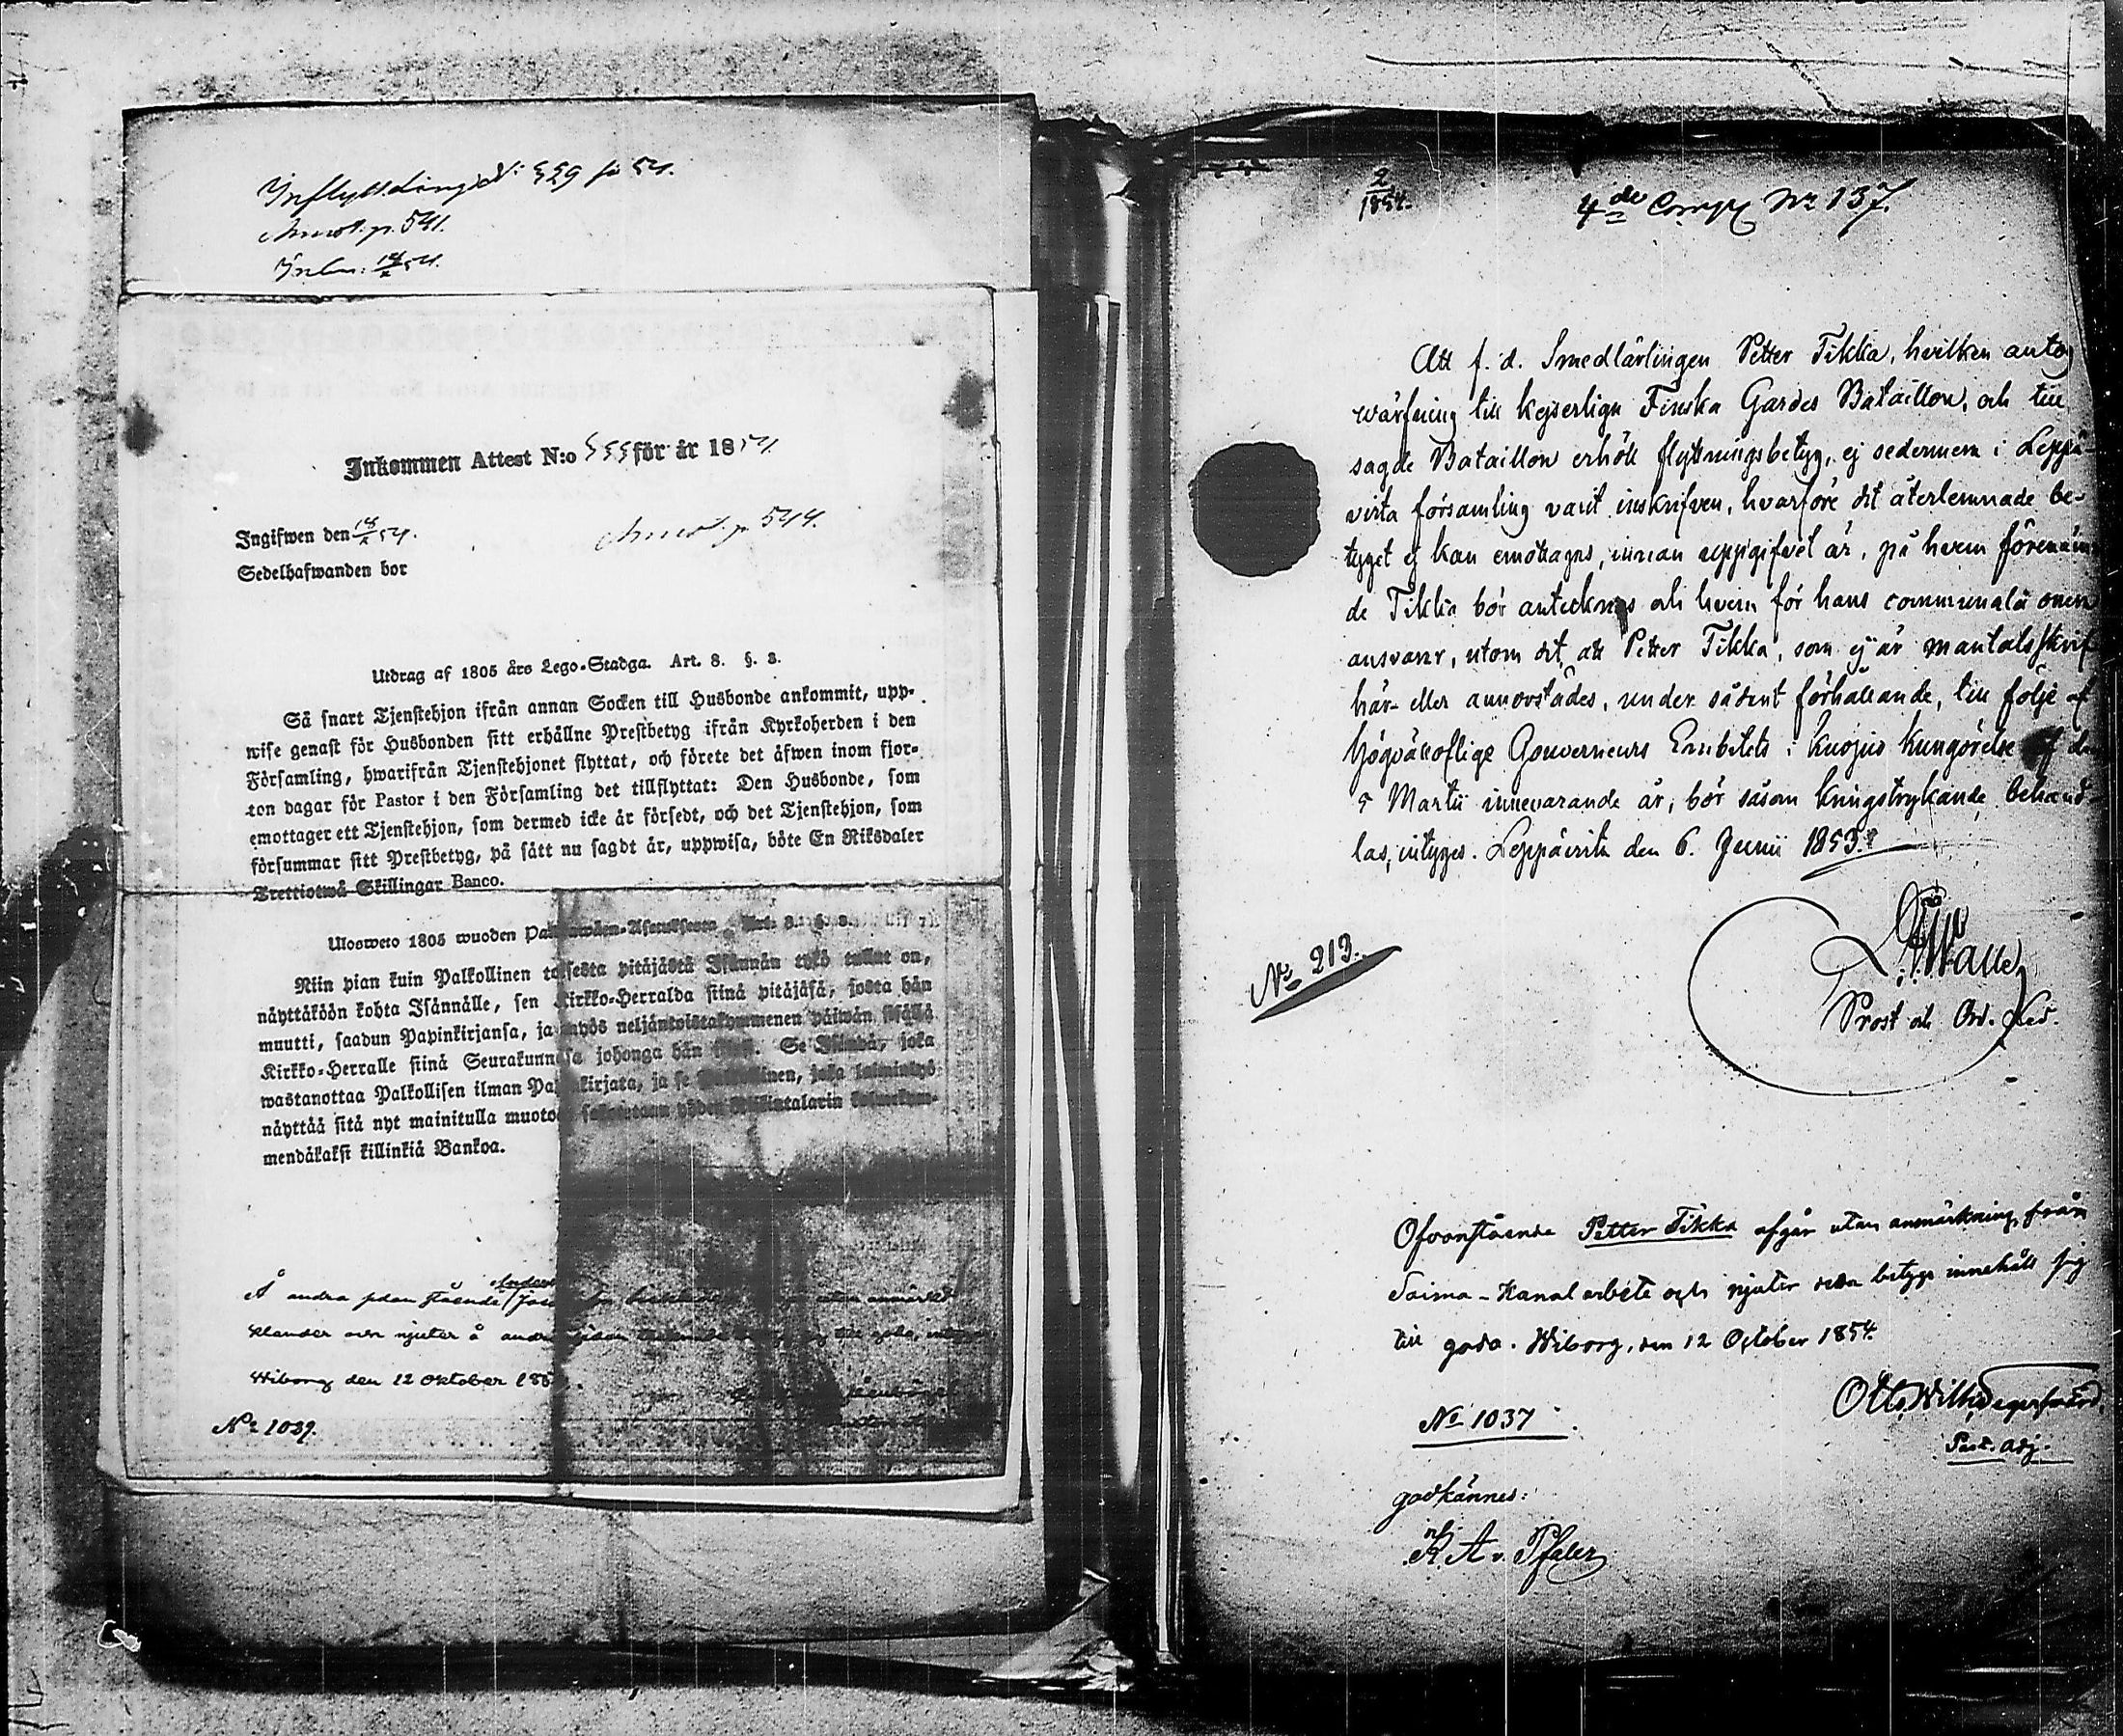 Inflyttning N: 529 för 54.
p. 541.
Inkommen Attest N:o 555 för år 1854.
Ingifwen den 14/X 54.
p. 544.
Sedelhafwanden bor
Utdrag af 1805 års Lego-Stadga. Art. 8. §. 3.
Så snart Tjenstehjon ifrån annan Socken till Husbonde ankommit, upp-
wise genast för Husbonden sitt erhållne Prestbetyg ifrån Kyrkoherden i den
Församling, hwarifrån Tjenstehjonet flyttat, och förete det äfwen inom fjor-
ton dagar för Pastor i den Församling det tillflyttat: Den Husbonde, som
emottager ett Tjenstehjon, som dermed icke är försedt, och det Tjenstehjon, som
försummar sitt Prestbetyg, på sätt nu sagdt är, uppwisa, böte En Riksdaler
Trettiotwå Skillingar Banco.
Ulosweto 1805 wuoden Palkkawäen-Asetuksesta Art. 8. §. 3.
Niin pian kuin Palkollinen toisesta pitäjästä Isännän tykö tullut on,
näyttäköön kohta Isännälle, sen Kirkko-Herralda siinä pitäjäsä, josta hän
muutti, saadun Papinkirjansa, ja myös neljäntoistakymmenen päiwän sisällä
Kirkko-Herralle siinä Seurakunnasa johonga hän. Se Isändä, joka
wastanottaa Palkollisen ilman Papinkirjata, ja se Palkollinen, joka laiminlyö
näyttää sitä nyt mainitulla muotoa, sakoitetaan yhden Riikintalarin kolmekym-
mendäkaksi killinkiä Bankoa.
Å andra sidan stående
klander och njuter å andra sidan till godo,
Wiborg den 12 Oktober 185
No 1039.
2/1854.
4de Comp No 137.
Att f. d. Smedlärlingen Petter Tikka, hvilken antog
wärfning till kejserliga Finska Gardes Bataillon, och till
sagde Bataillon erhöll flyttningsbetyg, ej sedermera i Leppä-
virta församling varit inskrifven, hvarföre det återlemnade be-
tyget ej kan emottagas, innan uppgifvet är, på hvem förenämn-
de Tikka bör antecknas och hvem för hans communala onera
ansvarar, utom det att Petter Tikka, som ej är mantalsskrif
här eller annorstädes, under sådant förhållande, till följe af
högvälloflige Gouverneurs Embetets i Kuopio kungörelse af den
5 Martii innevarande år, bör såsom kringstrykande behand-
las, intygas. Leppävirta den 6. Junii 1853.
No 213.
Prost och
Ofvanstående Petter Tikka afgår utan anmärkning från
Saima-Kanal arbete och njuter dess betygs innehåll sig
till godo. Wiborg, den 12 October 1854.
No 1037
Otto Wilh.
Past. adj.
godkännes:
K. A. v. Pfaler